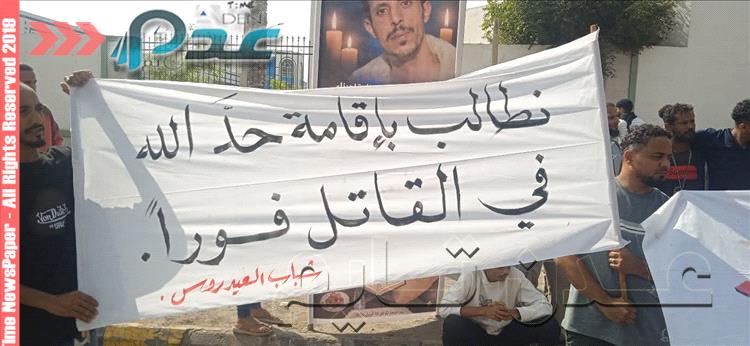 TIME
ADEN
عدن
نطالب بإقامة حدَّ الله
في القاتل فوراً.
شباب العيدروس.
عدن تايم
Von Dutch
Time NewsPaper - All Rights Reserved 2019